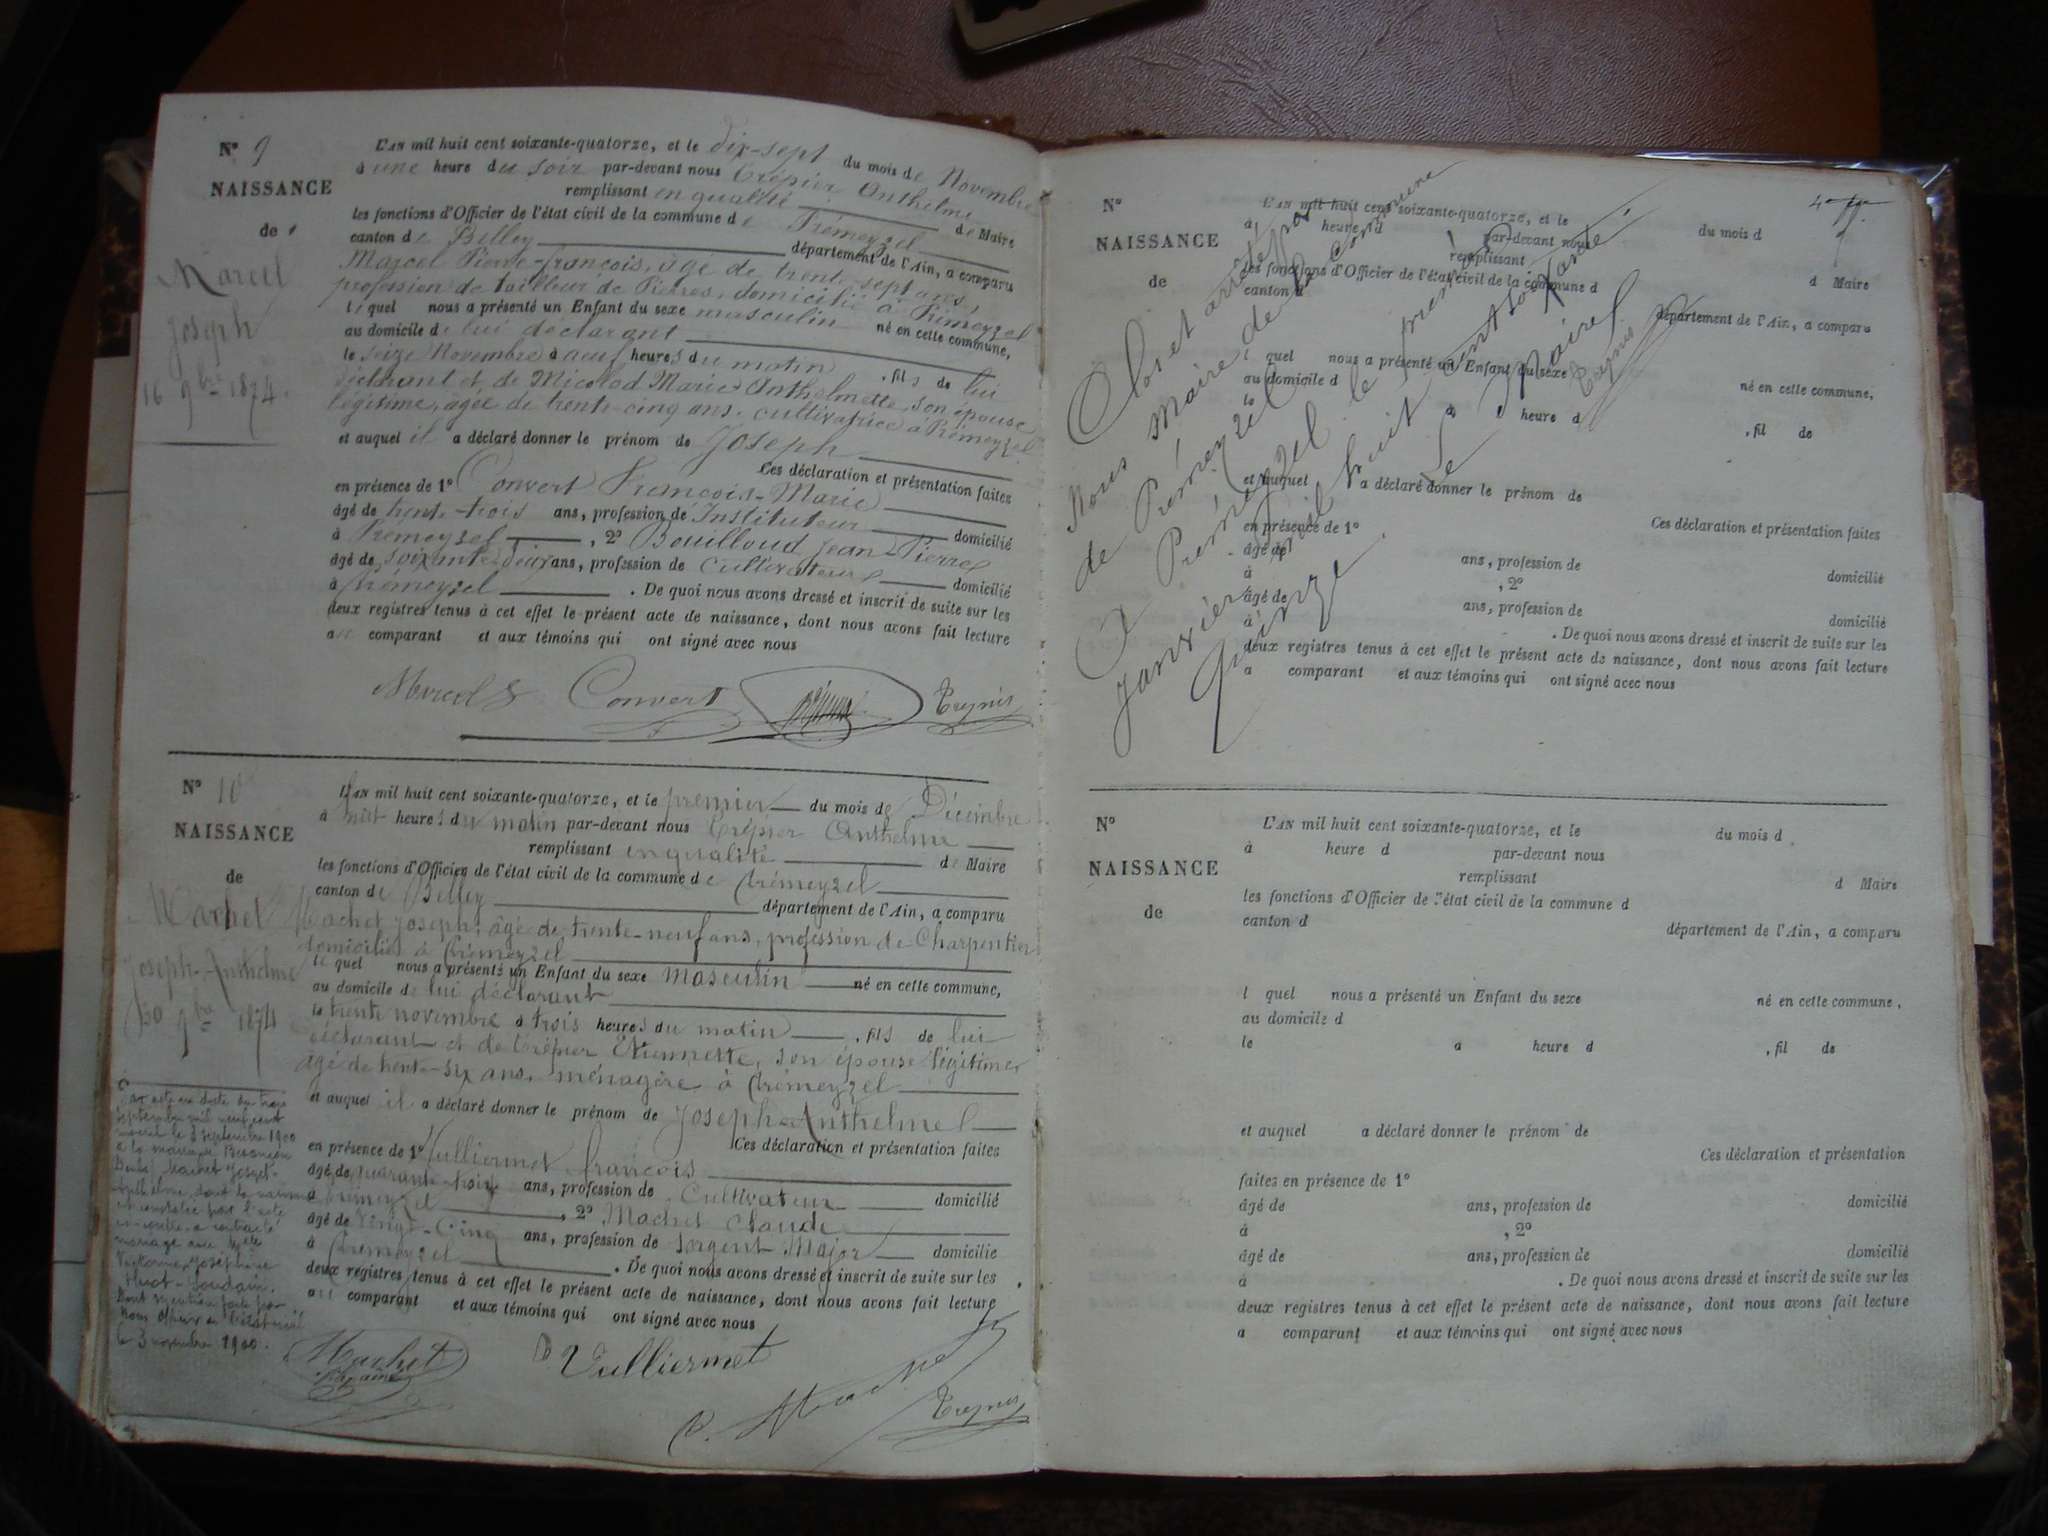 N° 9
NAISSANCE
de
Marcel
Joseph
16 9bre 1874.
L'AN mil huit cent soixante-quatorze, et le dix-sept du mois de Novembre
à une heure du soir par-devant nous Trépier Anthelme
remplissant en qualité de Maire
les fonctions d'Officier de l'état civil de la commune de Prémeyzel
canton de Belley département de l'Ain, a comparu
Marcel Pierre-françois, âgé de trente sept ans,
profession de tailleur de Pierres, domicilié à Prémeyzel
lequel nous a présenté un Enfant du sexe masculin né en cette commune,
au domicile de lui déclarant
le seize Novembre à neuf heures du matin, fils de lui
déclarant et de Marie Anthelmette, son épouse
légitime, agée de trente-cinq ans, cultivatrice à Prémeyzel
et auquel il a déclaré donner le prénom de Joseph
Ces déclaration et présentation faites
en présence de 1° Convert François-Marie
âgé de trente-trois ans, profession de Instituteur domicilié
à Prémeyzel, 2° Bouilloud Jean-Pierre
âgé de ans, profession de cultivateur domicilié
à Prémeyzel. De quoi nous avons dressé et inscrit de suite sur les
deux registres tenus à cet effet le présent acte de naissance, dont nous avons fait lecture
au comparant et aux témoins qui ont signé avec nous
Marcel Convert
N° 10
NAISSANCE
de
Machet
Joseph-Anthelme
30 9bre 1874
L'AN mil huit cent soixante-quatorze, et le premier du mois de Décembre
à huit heures du matin par-devant nous Trépier Anthelme
remplissant en qualité de Maire
les fonctions d'Officier de l'état civil de la commune de Prémeyzel
canton de Belley département de l'Ain, a comparu
Machet Joseph, âgé de trente-neuf ans, profession de Charpentier
domicilié à Prémeyzel
lequel nous a présenté un Enfant du sexe Masculin né en cette commune,
au domicile de lui déclarant
le trente novembre à trois heures du matin, fils de lui
déclarant et de Trépier Etiennette, son épouse légitime,
âgé de trente-six ans, ménagère à Prémeyzel
et auquel il a déclaré donner le prénom de Joseph-Anthelme
Ces déclaration et présentation faites
en présence de 1° Vulliermet françois
âgé de quarante-trois ans, profession de Cultivateur domicilié
à Prémeyzel, 2° Machet Claude
âgé de Vingt-Cinq ans, profession de Sergent-Major domicilié
à Prémeyzel. De quoi nous avons dressé et inscrit de suite sur les
deux registres tenus à cet effet le présent acte de naissance, dont nous avons fait lecture
au comparant et aux témoins qui ont signé avec nous
Par acte en date du trois
septembre mil neuf cent
le 3 septembre 1900
à la mairie Besançon
Doubs, Machet Joseph-
Anthelme, dont la naissance
est constatée par l'acte
ci-contre a contracté
mariage avec Melle
Victorine Joséphine
Huot-Soudain.
Dont mention faite par
Nous officier de l'état civil
le 3 novembre 1900.
Machet
Vulliermet
C. Machet
N°
NAISSANCE
de
L'AN mil huit cent soixante-quatorze, et le du mois d
à heure d par-devant nous
remplissant d Maire
les fonctions d'Officier de l'état civil de la commune d
canton d département de l'Ain, a comparu
l quel nous a présenté un Enfant du sexe né en cette commune,
au domicile d
le à heure d, fil de
et auquel a déclaré donner le prénom de
Ces déclaration et présentation faites
en présence de 1°
âgé de ans, profession de domicilié
à, 2°
âgé de ans, profession de domicilié
à. De quoi nous avons dressé et inscrit de suite sur les
deux registres tenus à cet effet le présent acte de naissance, dont nous avons fait lecture
a comparant et aux témoins qui ont signé avec nous
Clos et arrêté par
Nous Maire de la commune
de Prémeyzel
A Prémeyzel le premier
janvier mil huit cent soixante
Quinze.
Le Maire
N°
NAISSANCE
de
L'AN mil huit cent soixante-quatorze, et le du mois d
à heure d par-devant nous
remplissant d Maire
les fonctions d'Officier de l'état civil de la commune d
canton d département de l'Ain, a comparu
l quel nous a présenté un Enfant du sexe né en cette commune,
au domicile d
le a heure d, fil de
et auquel a déclaré donner le prénom de
Ces déclaration et présentation
faites en présence de 1°
âgé de ans, profession de domicilié
à, 2°
âgé de ans, profession de domicilié
à. De quoi nous avons dressé et inscrit de suite sur les
deux registres tenus à cet effet le présent acte de naissance, dont nous avons fait lecture
a comparant et aux témoins qui ont signé avec nous